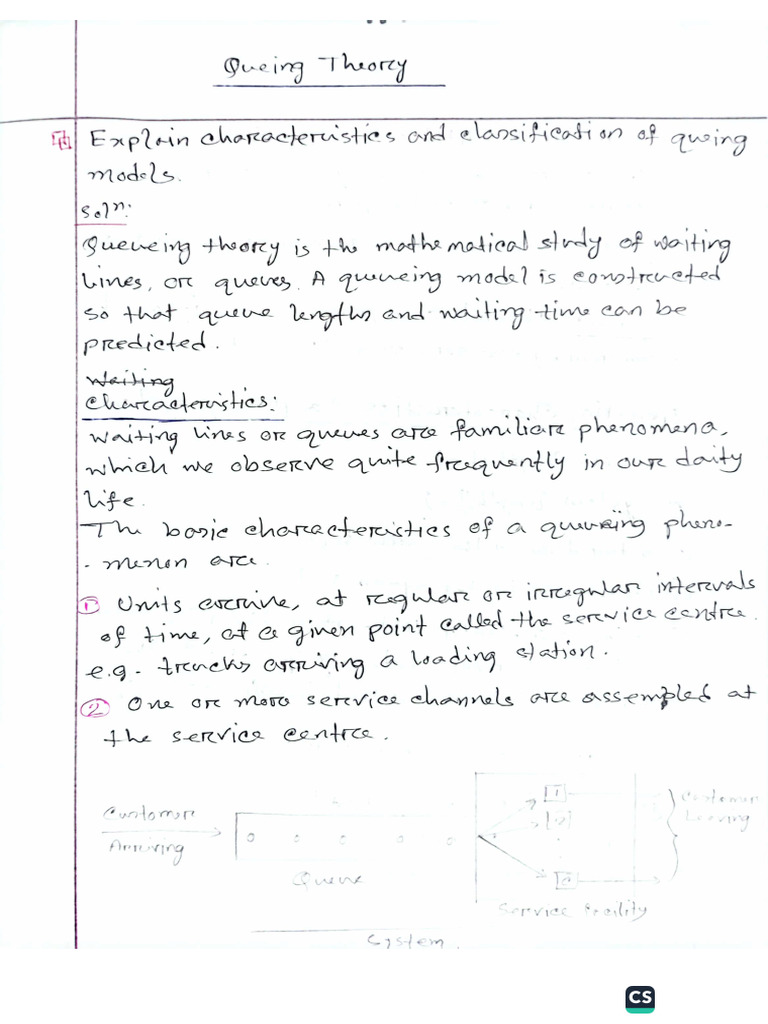 Queing Theory
Explain characteristics and classification of queing
models.
Solⁿ:
Queueing theory is the mathematical study of waiting
lines, or queues. A queueing model is constructed
so that queue lengths and waiting time can be
predicted.
Waiting
Characteristics:
Waiting lines or queues are familiar phenomena,
which we observe quite frequently in our daity
life.
The basic characteristics of a queueing pheno-
- menon are.
① Units arrive, at regular or irregular intervals
of time, at a given point called the service centre.
e.g. trucks arriving a loading station.
② One or more service channels are assempled at
the service centre.
Customer
Arriving
Queue
1
2
c
Service facility
Customer
Leaving
System.
CS